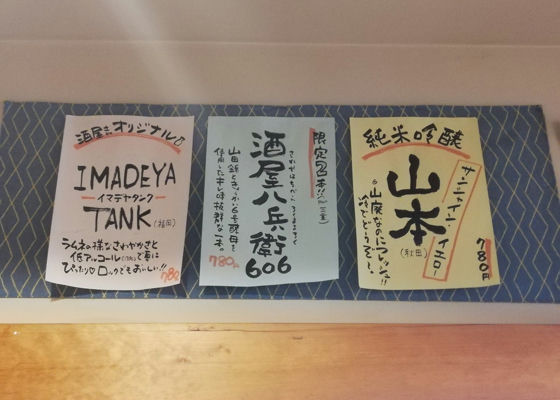 酒屋さんオリジナル
IMADEYA
イマデヤタンク
TANK (福岡)
ラムネの様なさわやかさと
低アルコールで夏に
ぴったり♡ロックでもおいしい!!
780
限定2本!!
酒屋八兵衛
606
山田錦ときょうかい6号酵母を
使用したキレ味抜群な一本。
780円
純米吟醸
サンシャイン イエロー
山本
(秋田)
山廃なのにフレッシュ!!
冷でどうぞ〜。
780円